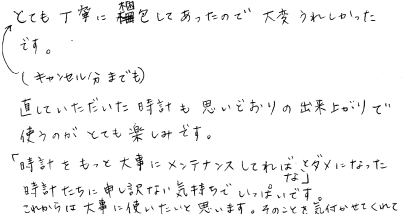 とても丁寧に梱包してあったので 大変うれしかった
です。
(キャンセル分までも)
直していただいた時計も思いどおりの出来上がりで
使うのがとても楽しみです。
「時計をもっと大事にメンテナンスしてればとダメになった
な」
時計たちに申し訳ない気持ちでいっぱいです。
これからは大事に使いたいと思います。そのことを気付かせてくれて